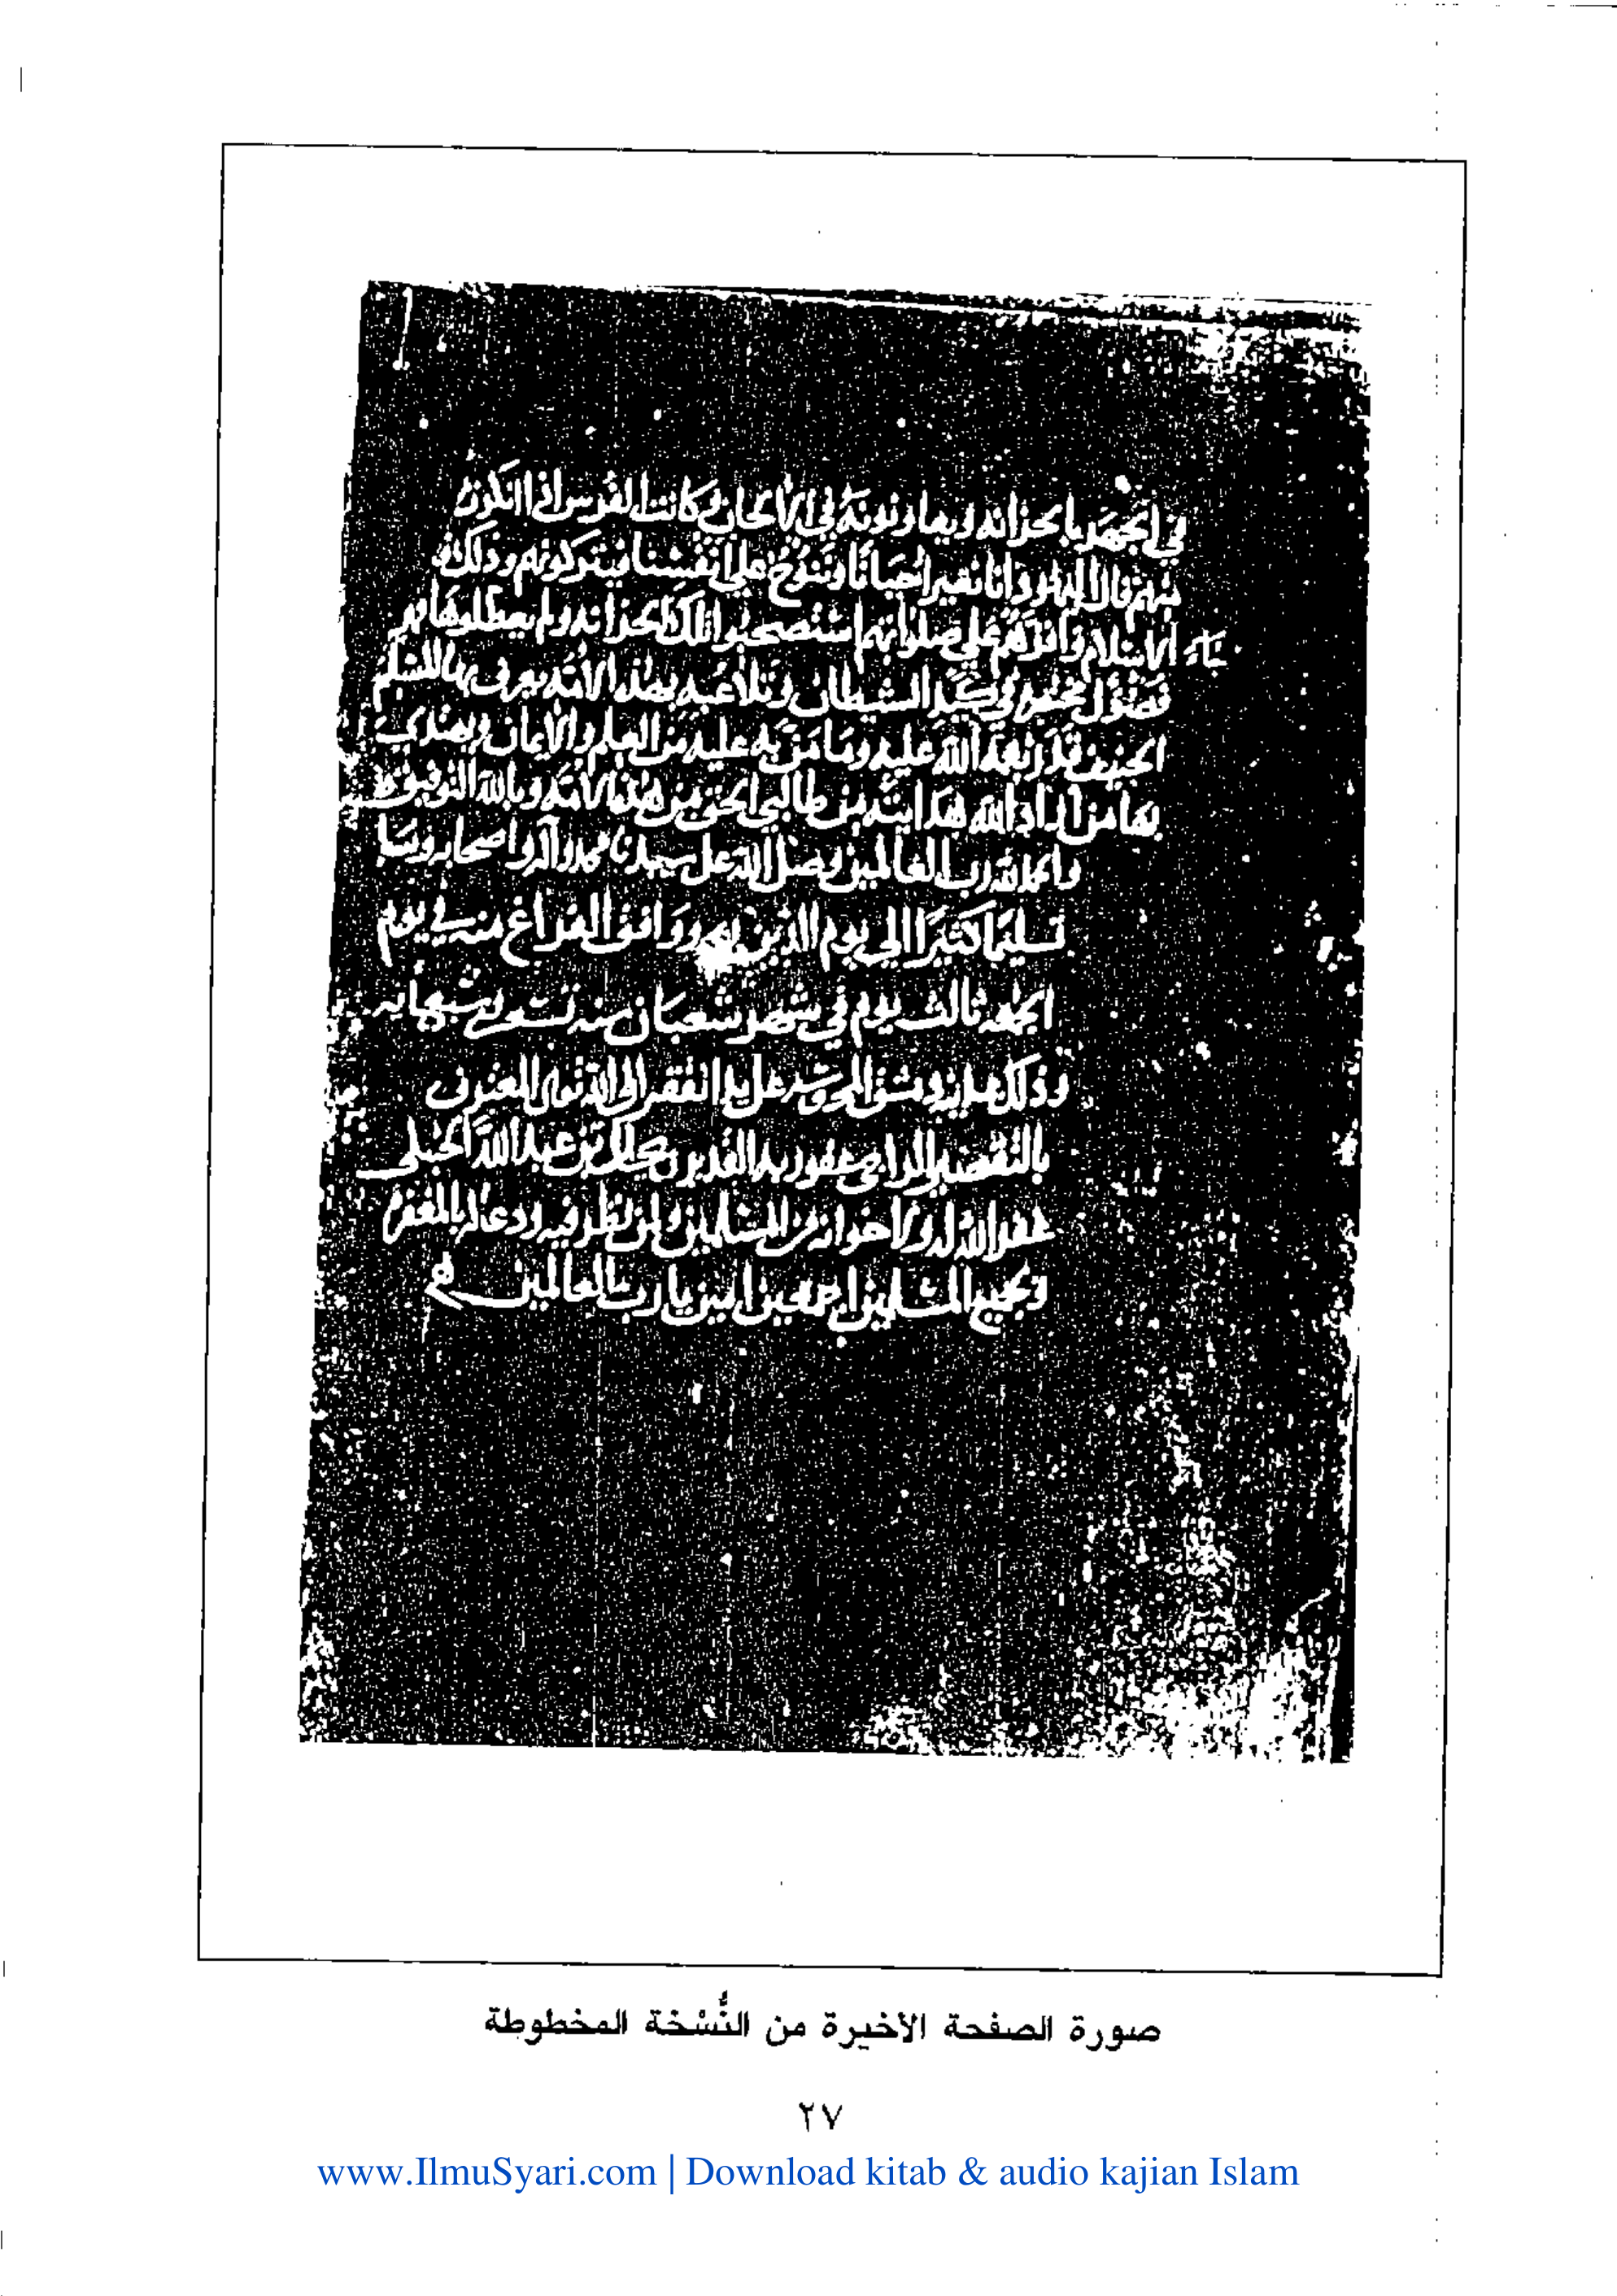 في الجهر بالحزانه ويعاونونه في الالحان وكانت الفرس اذا انكرت
منهم قال اليهود انا نغني احيانا وننوح على انفسنا فيتركونهم وذلك
الاسلام واقرهم على صلواتهم استصحبوا تلك الحزانه ولم يعطلوها فهذه
فصول مختصره في كيد الشيطان وتلاعبه بهذه الامة يعرف بها المسلم
الحنيف قدر نعمة الله عليه وما من به عليه من العلم والايمان ويهتدي
بها من اراد الله هدايته من طالبي الحق من هذه الامه وبالله التوفيق
والحمد لله رب العالمين وصلى الله على سيدنا محمد وآله واصحابه وسلم
تسليما كثيرا الى يوم الدين ووافق الفراغ منه في يوم
الجمعه ثالث يوم في شهر شعبان سنه
وذلك بمدينة دمشق المحروسه على يد الفقير الى الله تعالى المعترف
بالتقصير الراجي عفو ربه القدير بن عبد الله الحنبلي
غفر الله له ولاخوانه من المسلمين ولمن نظر فيه ودعا له بالمغفرة
ولجميع المسلمين اجمعين امين يا رب العالمين
صورة الصفحة الأخيرة من النُّسْخة المخطوطة
٢٧
www.IlmuSyari.com | Download kitab & audio kajian Islam